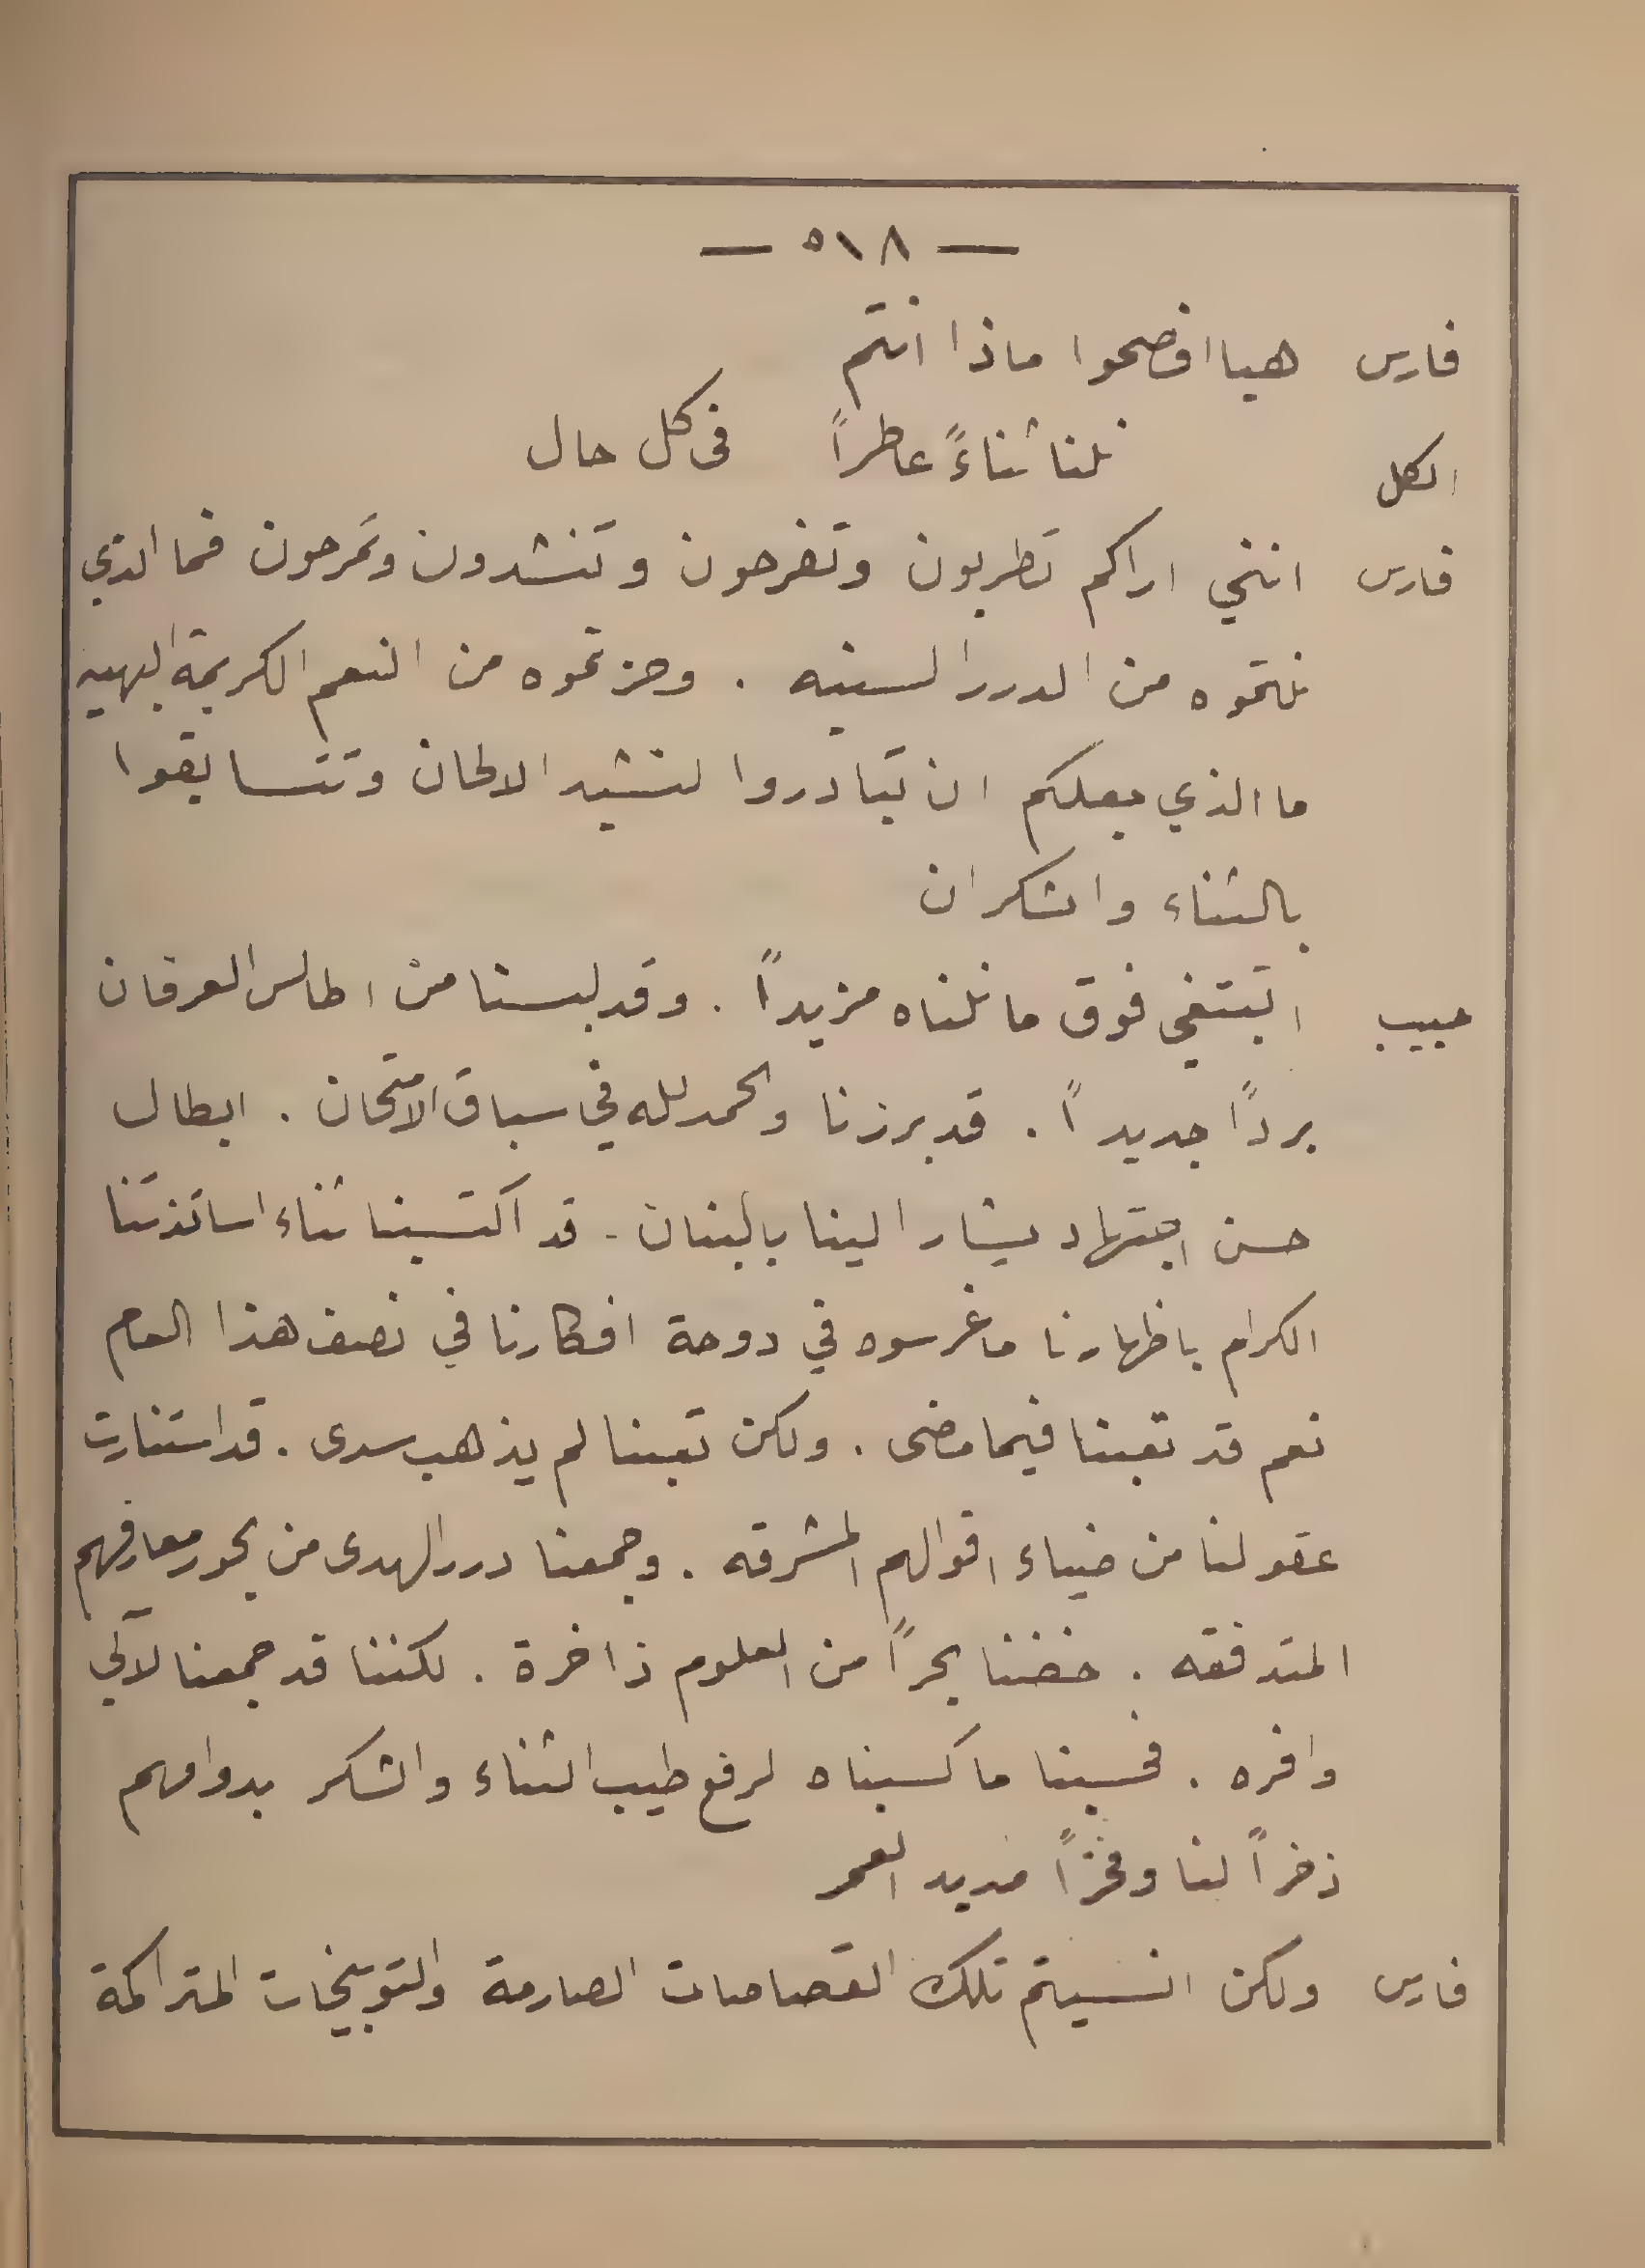 — ٥١٨ —
فارس هيا افصحوا ماذا انتم
الكل نلنا ثناءً عاطراً في كل حال
فارس انني اراكم تطربون وتفرحون وتنشدون وتمرحون فما الذي
نلتموه من الدرر السنيه . وحزتموه من النعم الكريمة البهيه
ما الذي جعلكم ان تبادروا لنشيد الالحان وتتسابقوا
بالثناء والشكران
حبيب اتبتغي فوق ما نلناه مزيداً . وقد لبسنا من اطالس العرفان
برداً جديداً . قد برزنا والحمد لله في سباق الامتحان . ابطال
حسن اجتهاد يشار الينا بالبنان - قد اكتسبنا ثناء اساتذتنا
الكرام باظهارنا ما غرسوه في دوحة افكارنا في نصف هذا العام
نعم قد تعبنا فيما مضى . ولكن تعبنا لم يذهب سدى . قد استنارت
عقولنا من ضياء اقوالهم المشرقه . وجمعنا درر الهدى من بحور معارفهم
المتدفقه . خضنا بحراً من العلوم ذاخرة . لكننا قد جمعنا لآلي
وافره . فحسبنا ما كسبناه لرفع طيب الثناء والشكر بدوامهم
ذخراً لنا وفخراً مديد العمر
فارس ولكن انسيتم تلك القصاصات الصارمة والتوبيخات المتراكمة